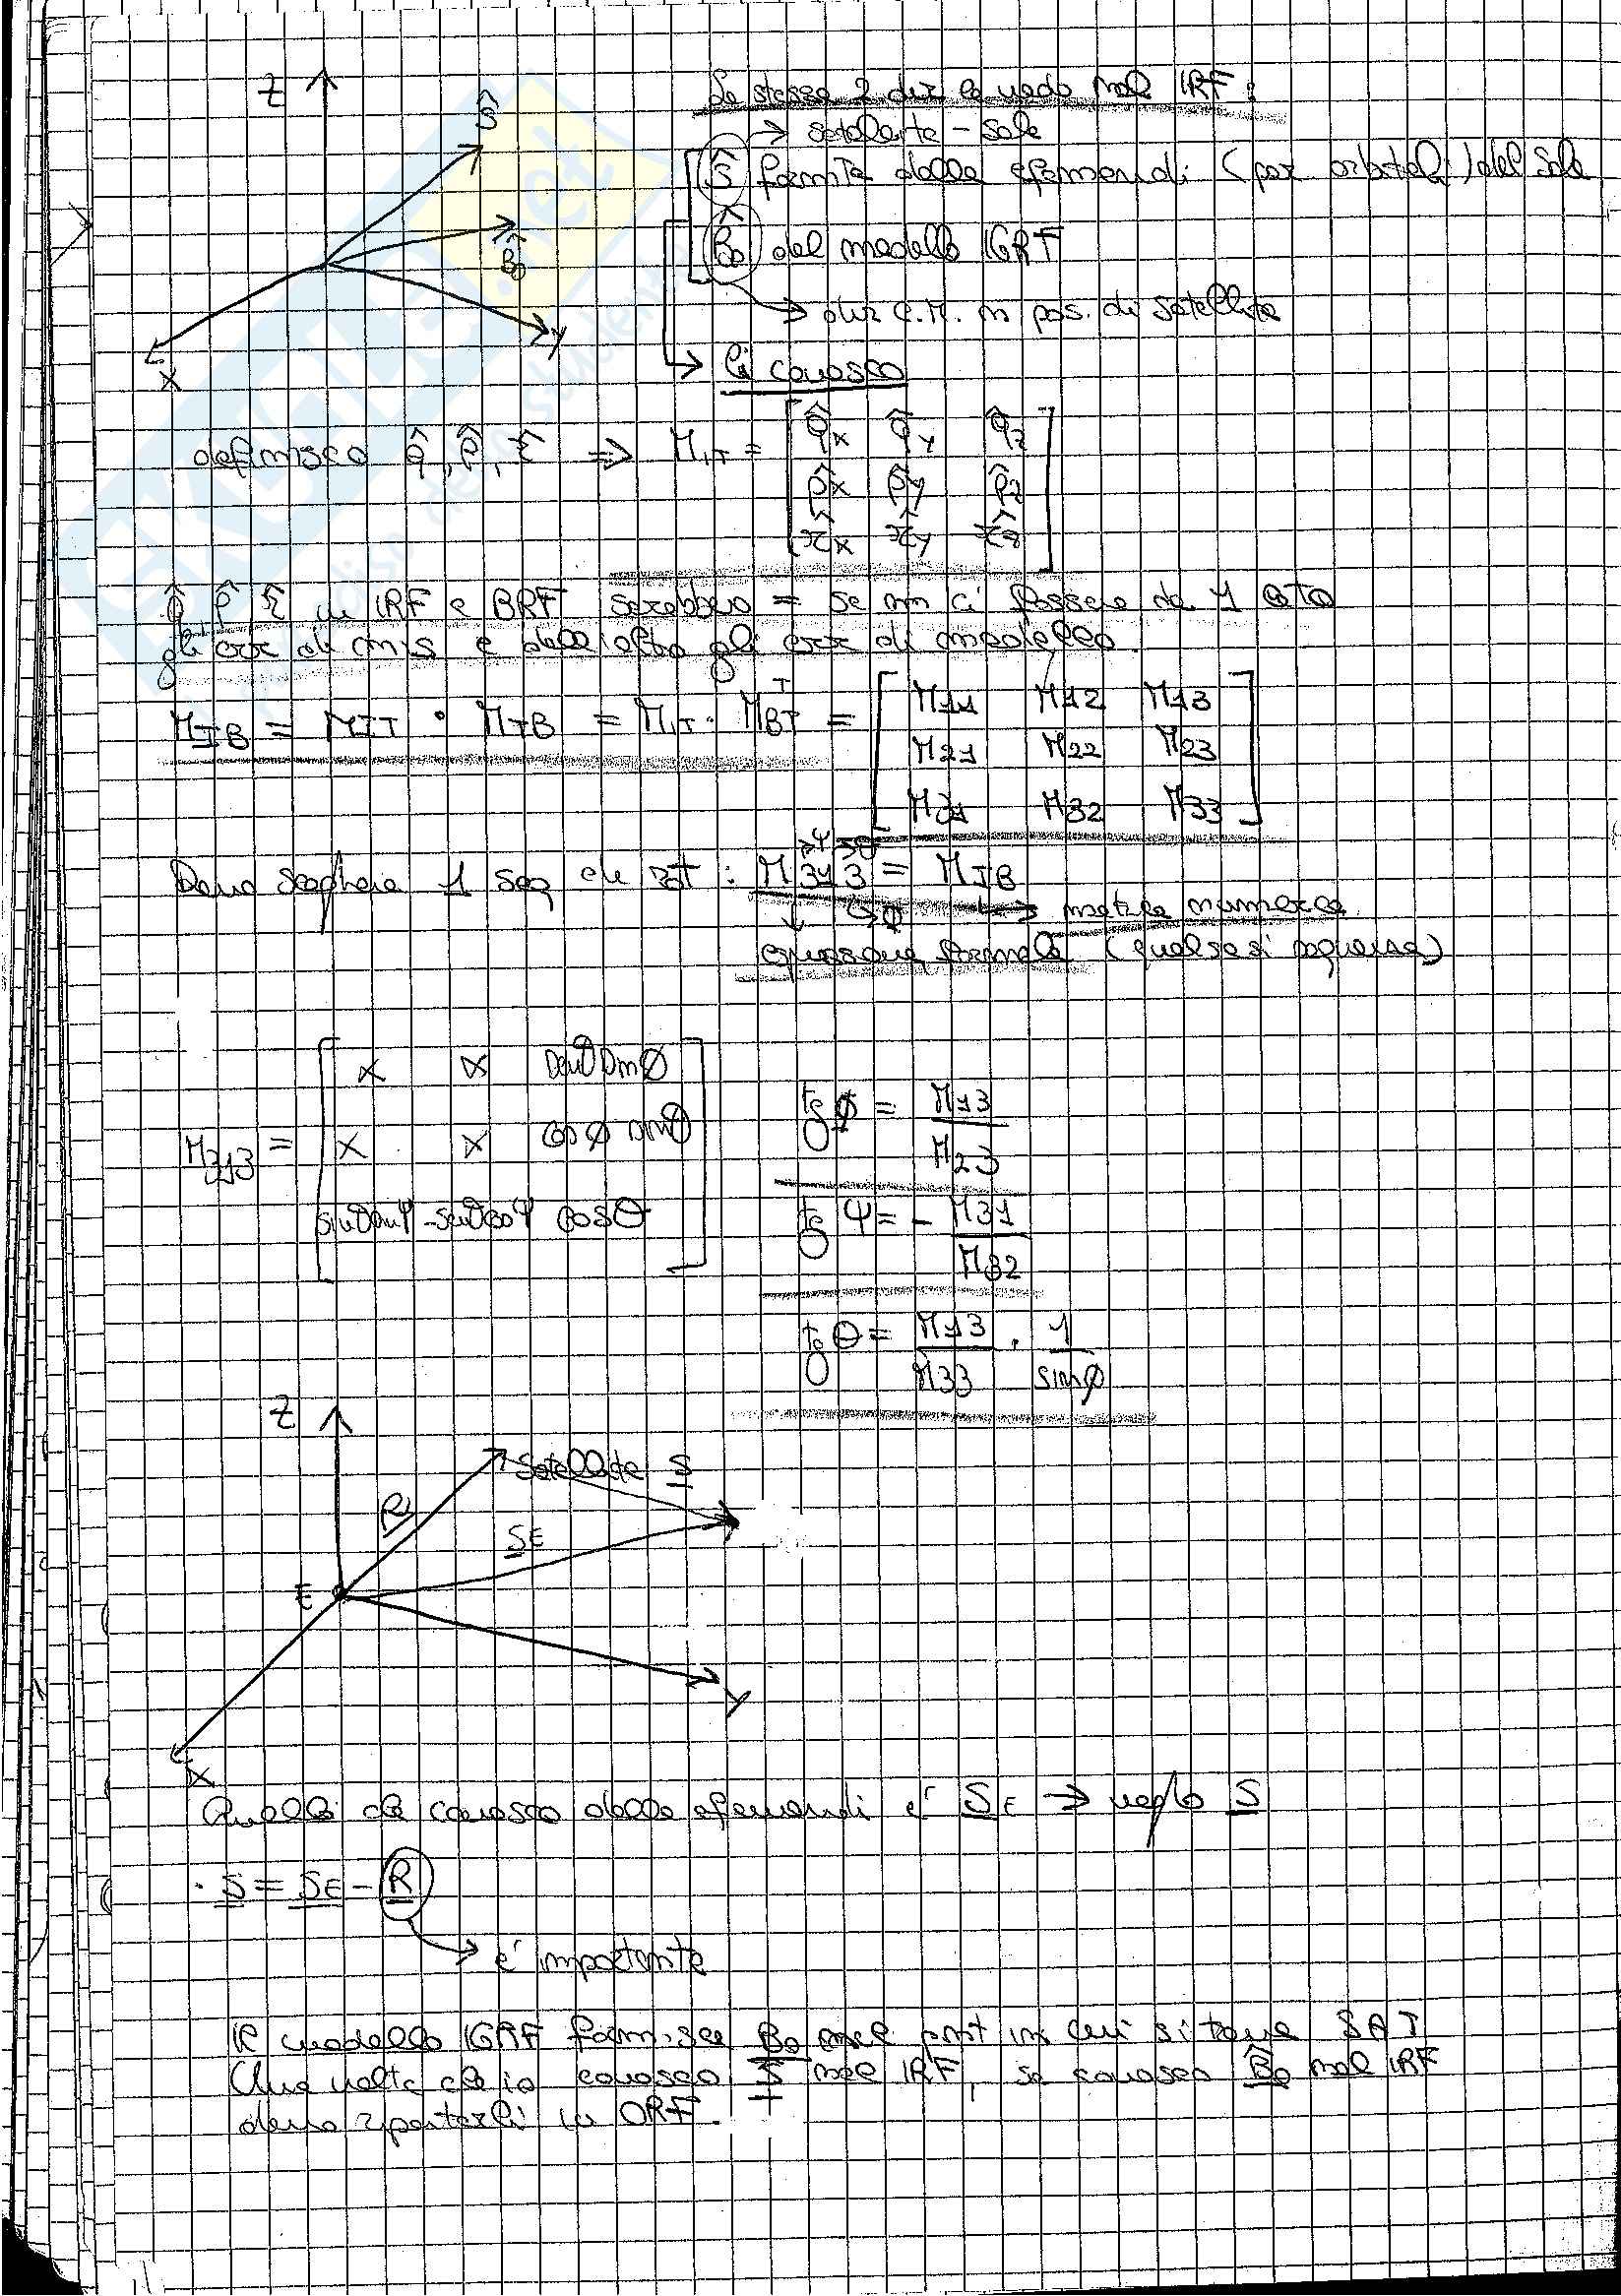 Z
Ŝ
B̂0
Y
X
Le stesse 2 dir le vedo nel IRF:
→ satellite - Sole
Ŝ fornita dalle efemeridi (par orbitali) del Sole
B̂0 dal modello IGRF
→ dir C.M. in pos. di satellite
→ li conosco
definisco q̂, p̂, r̂ => M_IT = [ q̂x q̂y q̂z
p̂x p̂y p̂z
r̂x r̂y r̂z ]
q̂, p̂, r̂ in IRF e BRF sarebbero = se nn ci fossero da 1 lato
gli err di mis e dall'altro gli err di modello.
M_IB = M_IT · M_TB = M_IT · M_BT^T = [ M11 M12 M13
M21 M22 M23
M31 M32 M33 ]
→ψ →θ
Devo scegliere 1 seq di rot : M313 = M_IB
↓ ↳φ ↳ matrice numerica
espressione formale (qualsiasi sequenza)
M313 = [ x x senθ sinφ
x x cosφ sinθ
sinθ sinψ -senθ cosψ cosθ ]
tg φ = M13 / M23
tg ψ = - M31 / M32
tg θ = M13 / M33 · 1 / sinφ
Z
Satellite S
R
SE
E
Y
X
Quello che conosco dalle efemeridi è SE → voglio S
· S = SE - R
→ è importante
Il modello IGRF fornisce B0 nel pnt in cui si trova SAT
Una volta che io conosco S nel IRF, se conosco B̂0 nel IRF
devo riportarli in ORF.